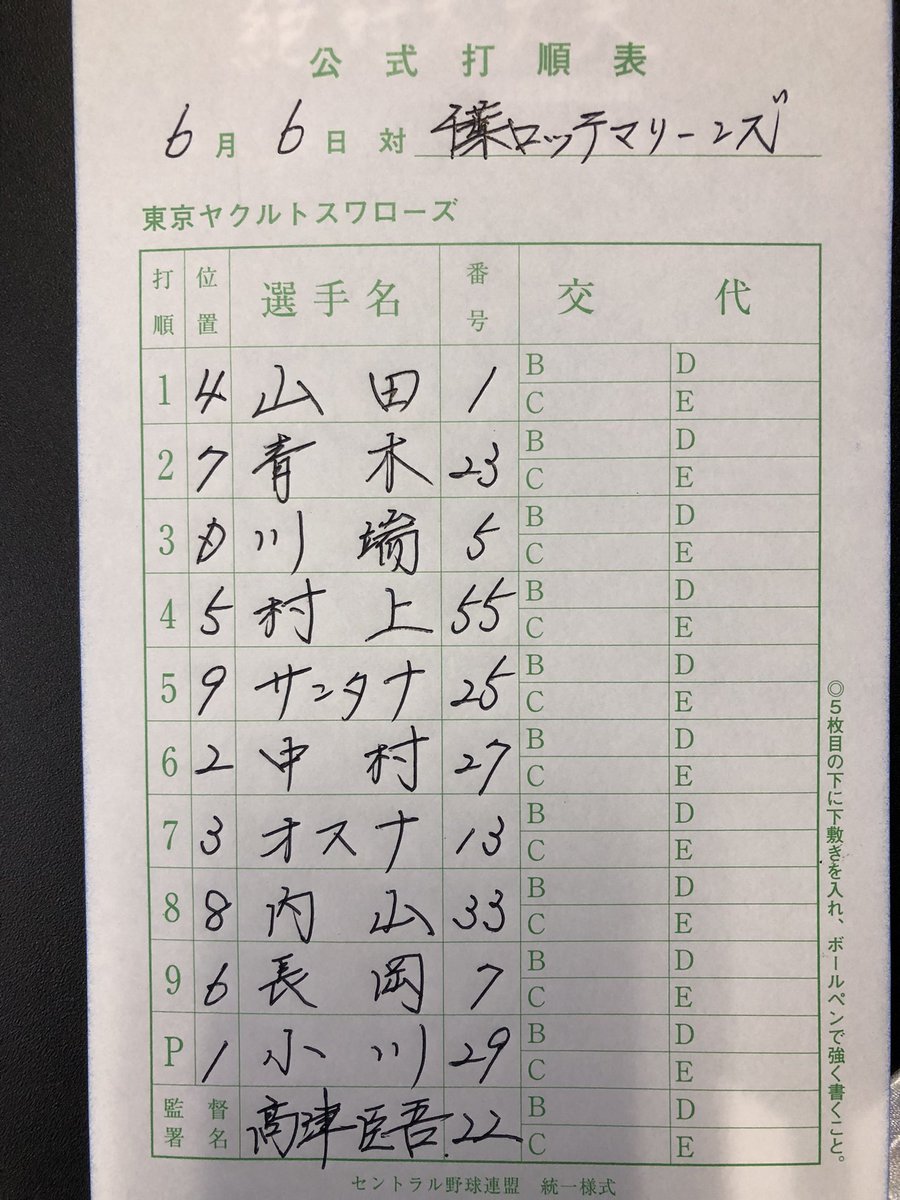 公式打順表
6月6日対 千葉ロッテマリーンズ
東京ヤクルトスワローズ
打順 位置 選手名 番号 交代
1 4 山田 1 B D C E
2 7 青木 23 B D C E
3 D 川端 5 B D C E
4 5 村上 55 B D C E
5 9 サンタナ 25 B D C E
6 2 中村 27 B D C E
7 3 オスナ 13 B D C E
8 8 内山 33 B D C E
9 6 長岡 7 B D C E
P 1 小川 29 B D C E
監督署名 高津臣吾 22 B D C E
◎5枚目の下に下敷きを入れ、ボールペンで強く書くこと。
セントラル野球連盟 統一様式